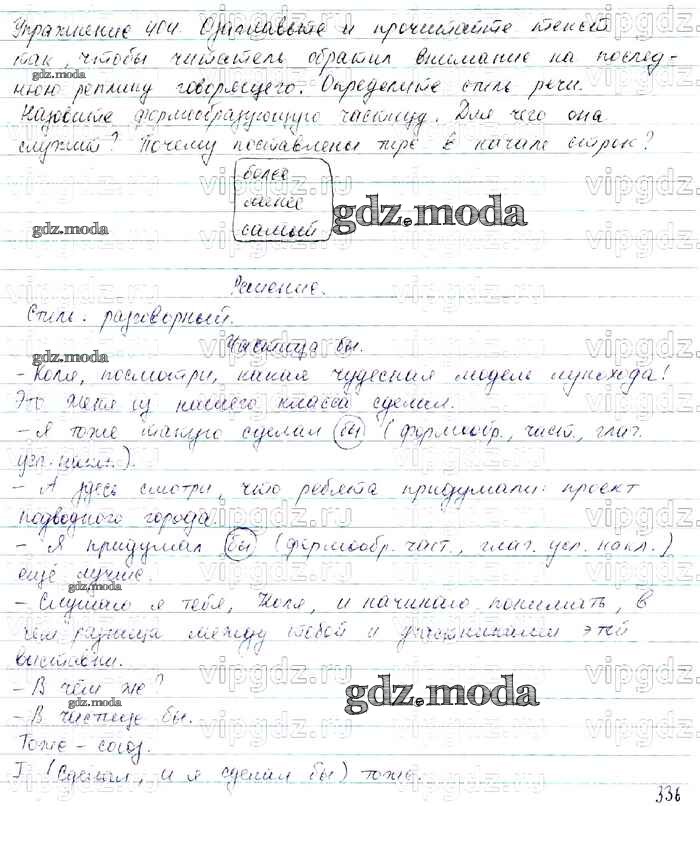 Упражнение 404. Озаглавьте и прочитайте текст
так, чтобы читатель обратил внимание на послед-
нюю реплику говорящего. Определите стиль речи.
Назовите формообразующую частицу. Для чего она
служит? Почему поставлены тире в начале строк?
более
менее
самый
gdz.moda
Решение.
Стиль: разговорный.
Частица бы.
- Коля, посмотри, какая чудесная модель лунохода!
Это Женя из нашего класса сделил.
- Я тоже такую сделил бы (формообр., част., глаг.
усл. накл.).
- А здесь смотри, что ребята придумали: проект
подводного города
- Я придумал бы (формообр. част., глаг. усл. накл.)
ещё лучше.
- Слушаю я тебя, Коля, и начинаю понимать, в
чём разница между тобой и участниками этой
выставки.
- В чём же?
- В частице бы.
gdz.moda
Тоже - союз.
(Сделал, и я сделал бы) тоже.
336